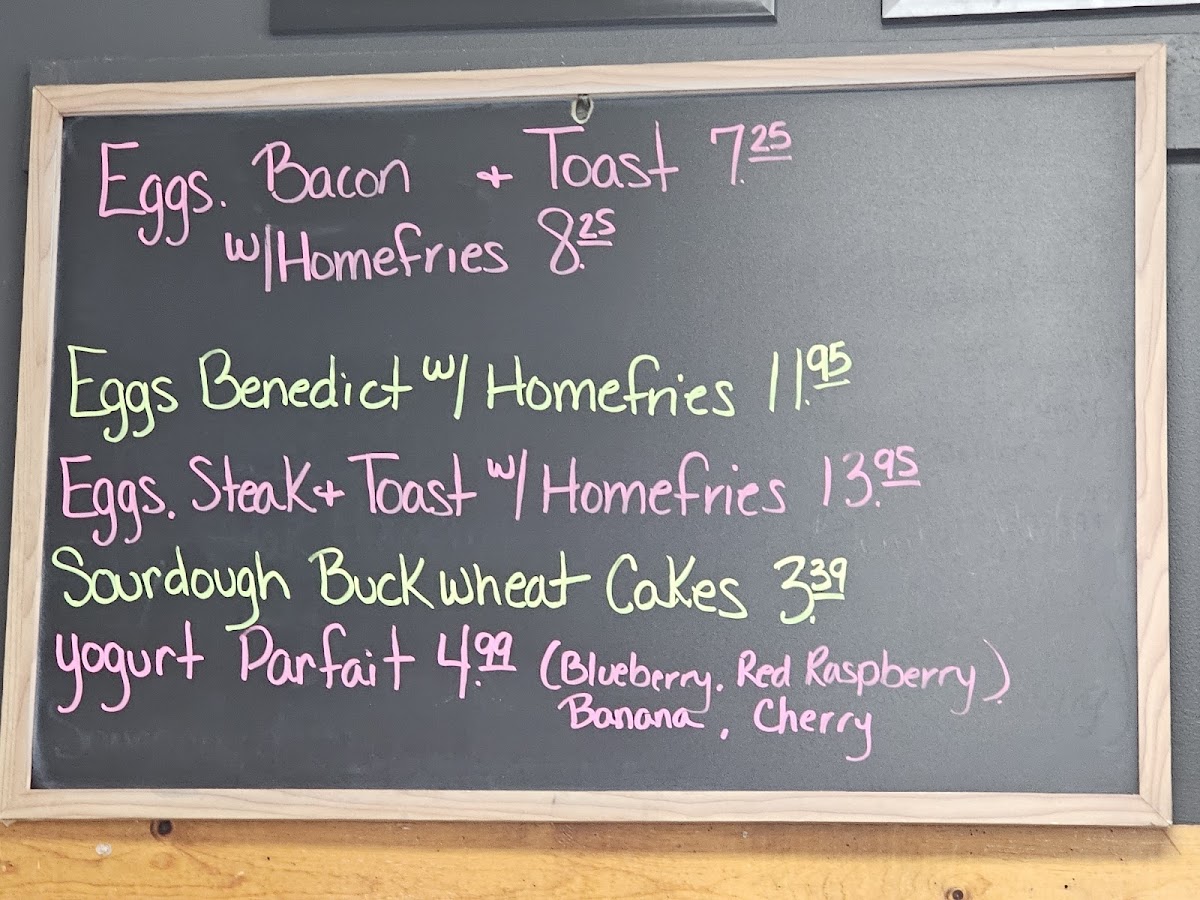 Eggs. Bacon + Toast 7.25
w/Homefries 8.25
Eggs Benedict w/ Homefries 11.95
Eggs. Steak + Toast w/ Homefries 13.95
Sourdough Buckwheat Cakes 3.39
yogurt Parfait 4.99 (Blueberry. Red Raspberry)
Banana, Cherry